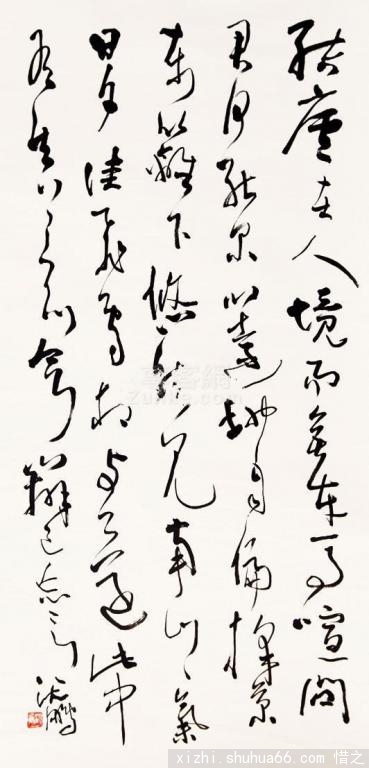 結廬在人境而無車馬喧問
君何能尔心遠地自偏採菊
東籬下悠然見南山々氣
日夕佳飛鳥相與還此中
有真意欲辯已忘言
沈鵬
xizhi.shuhua66.com 惜之